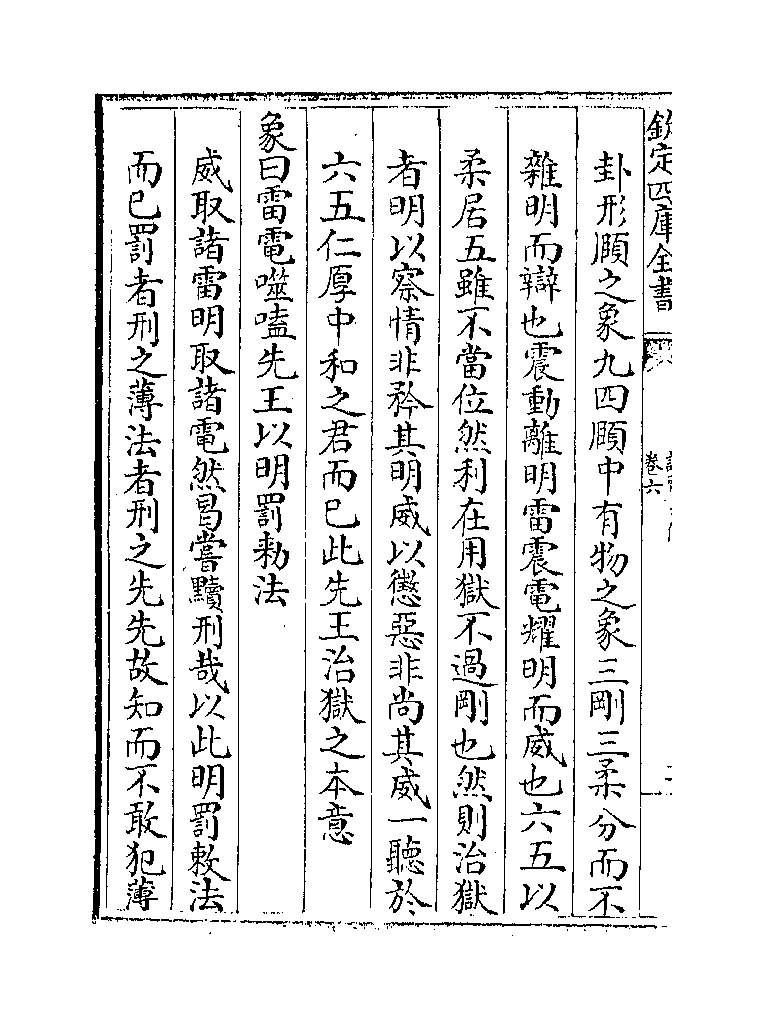 欽定四庫全書
卷六
卦形頥之象九四頥中有物之象三剛三柔分而不
雜明而辯也震動離明雷震電耀明而威也六五以
柔居五雖不當位然利在用獄不過剛也然則治獄
者明以察情非矜其明威以懲惡非尚其威一聽於
六五仁厚中和之君而已此先王治獄之本意
象曰雷電噬嗑先王以明罰勑法
威取諸雷明取諸電然曷嘗黷刑哉以此明罰敕法
而已罰者刑之薄法者刑之先先故知而不敢犯薄